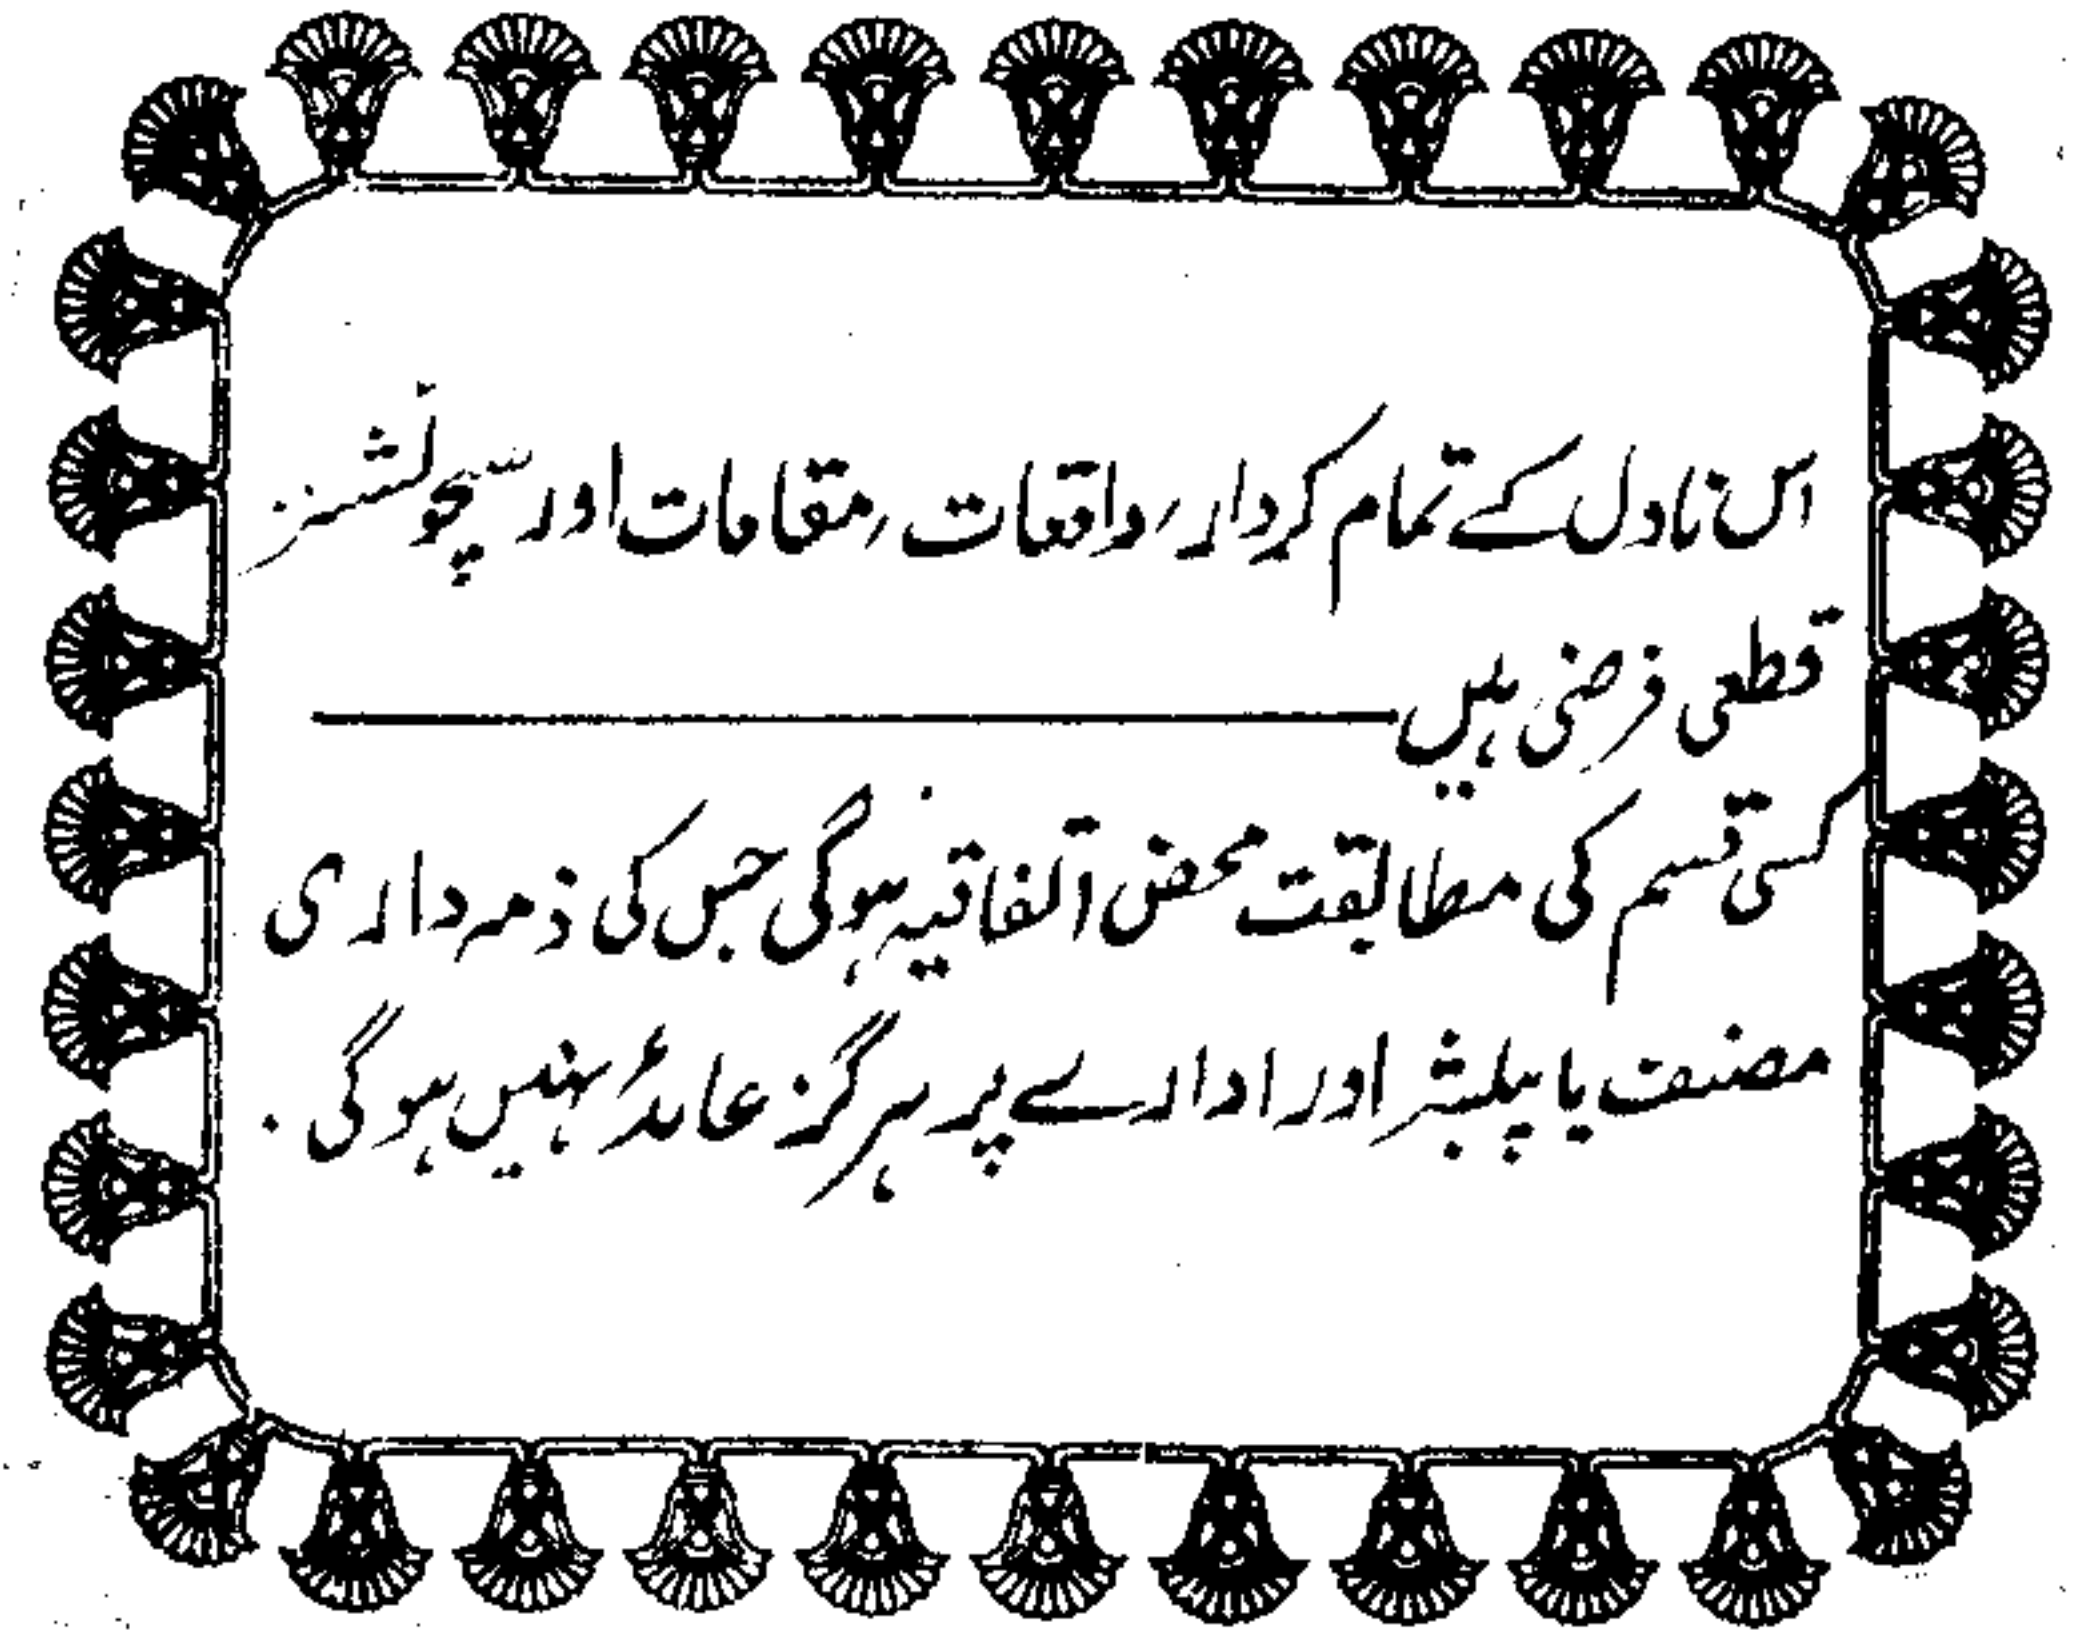 اس ناول کے تمام کردار، واقعات، مقامات اور سچوئشنز
قطعی فرضی ہیں
کسی قسم کی مطابقت محض اتفاقیہ ہوگی جس کی ذمہ داری
مصنف یا پبلشر اور ادارے پر ہرگز عائد نہیں ہوگی۔